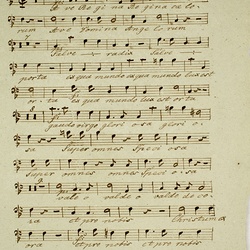 Ave Regina Regina celo-
rum Ave Domina Angelorum
Salve radix Salve
porta ex qua mundo lux est
orta ex qua mundo lux est orta
gaude virgo gloriosa glorio-
sa Super omnes Speciosa
Super omnes omnes Speciosa
vale o valde o valde deco-
ra et pro nobis Christum
et pro nobis et pro nobis